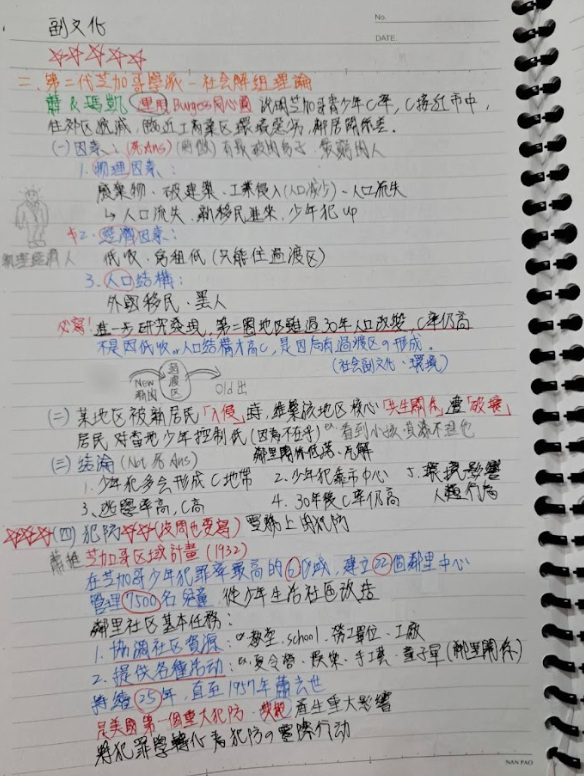 No.
DATE
副文化
二、第二代芝加哥學派-社會解組理論
蕭&瑪凱 運用Burgess同心圓 說明芝加哥青少年C率, C接近市中,
住郊区遞減, 臨近工商業区環境惡劣, 鄰居關係差.
(一)因素: (非Ans)
1. 物理因素:
廢棄物、破建築、工業侵入(人口減少)-人口流失
↳人口流失、新移民進來、少年犯up
2. 經濟因素:
低收、房租低(只能住過渡区)
3. 人口結構:
外國移民、黑人
必寫! 進一步研究發現, 第二圈地区雖過30年人口改變, C率仍高
不是因低收or人口結構才高C, 是因為有過渡区の形成.
(社會副文化、環境)
New 過渡区 old出
(二) 某地区被新居民「入侵」時, 維繫該地区核心「共生關係」遭「破壞」
居民對當地少年控制低(因為不在乎)
鄰里關係低落、瓦解
(三) 結論 (Not 非Ans)
1. 少年犯多會形成C地帶 2. 少年犯靠市中心 5. 環境影響
3. 逃學率高, C高 4. 30年後C率仍高 人種行為
(四) 犯防 (沒問也要寫) 實務上的犯防
芝加哥区域計畫 (1932)
在芝加哥少年犯罪率最高的6区域, 建立22個鄰里中心
管理7500名兒童 從少年生活社區改善
鄰里社区基本任務:
1. 協調社区資源: ex教堂、school、勞工單位、工廠
2. 提供各種活動: ex夏令營、娛樂、手工藝、童子軍(鄰里關係)
持續25年, 直至1957年蕭去世
是美國第一個重大犯防 產生重大影響
將犯罪學轉化為犯防の實際行動
NAN PAO